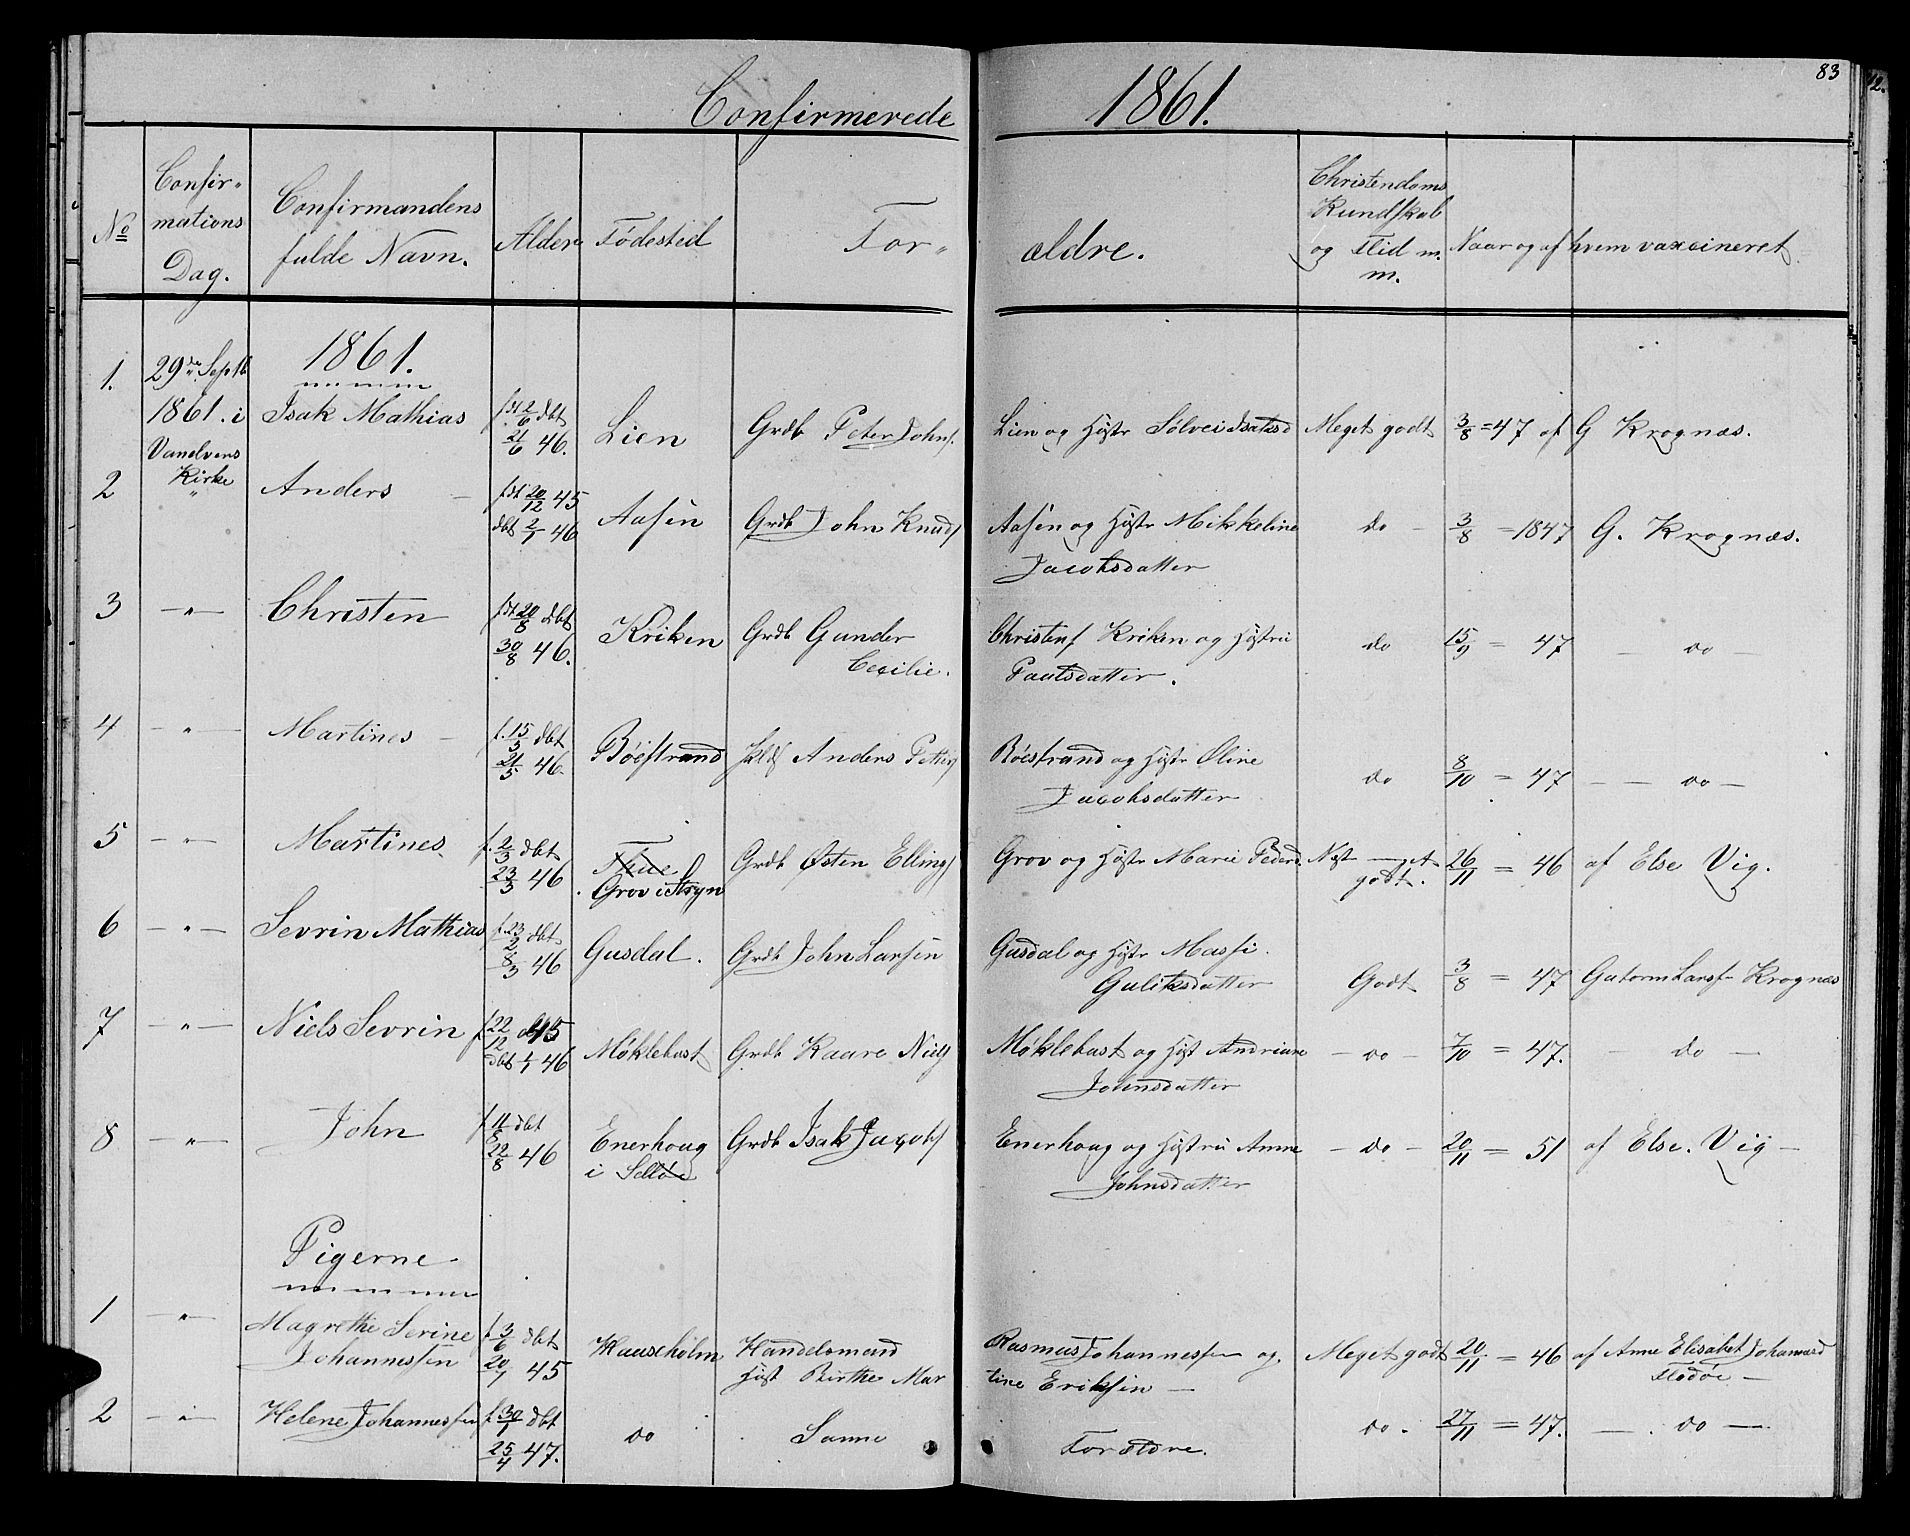 83
Confirmerede 1861.
No
Confir-
mations
Dag.
Confirmandens
fulde Navn.
Alder
Födested
For-
ældre.
Christendoms
Kundskab
og Flid m.
m.
Naar og af hvem vaxcineret
1861.
1. 29de Septb 1861. i Vandvens Kirke
Isak Mathias
f. 2/6 dbt
21/6 46.
Lien
Grdb Peter Johns.
Lien og Hstr Sølvei Isaksd
Meget godt
3/8 = 47 af G Krognæs.
2 " Anders -
20/12 45
dbt 2/1 46
Aasen
Grdb John Knuds
Aasen og Hstr Mikkeline
Jacobsdatter
do -
3/8 = 1847 G. Krognæs.
3 -"- Christen
20/8 dbt
30/8 46.
Kriken
Grdb Gunder
Cecilie.
Christens Kriken og Hstru
Paulsdatter.
do
15/9 = 47 - do -
4 -"- Martines -
f. 15/5 dbt
21/5 46.
Böestrand
Anders Peters
Röestrand og Hstr Oline
Jacobsdatter
do
8/10 = 47 - - do -
5 -"- Martines
f. 2/3 dbt
23/3 46
Grov i Stryn
Grdb Østen Ellings
Grov og Hstr Marie Pedersd.
Næst meget
godt.
26/11 = 46 af Else Vig.
6 -"- Sevrin Mathias
f. 23/2 dbt
8/3 46
Gusdal.
Grdb John Larsen
Gusdal og Hstr Massi
Guliksdatter
Godt
3/8 = 47 Gutorm Larss Krognæs
7 -"- Niels Sevrin
f. 22/12 45
dbt 1/1 46
Møklebust
Grdb Kaare Niels
Møklebust og Hst Andriane
Johnsdatter
- do -
7/10 = 47. - do -
8 -"- John
f. 11/8 dbt
22/8 46
Enerhoug
i Selløe
Grdb Isak Jacobs
Enerhoug og Hstru Anne
Johnsdatter
- do -
20/11 = 51 af Else. Vig -
Pigerne
1 -"- Magrethe Serine
Johannessen
f. 3/6 dbt
20/7 45
Hauseholm
Handelsmand
Hst Birthe Mar
Rasmus Johannessen og
tine Eriksen -
Meget godt
20/11 = 46 af Anne Elisabet Johannesd
Flodøe -
2 -"- Helene Johannessen
f. 30/1 dbt
25/4 47.
do
Samme
Forældre.
do.
27/11 = 47. - do -